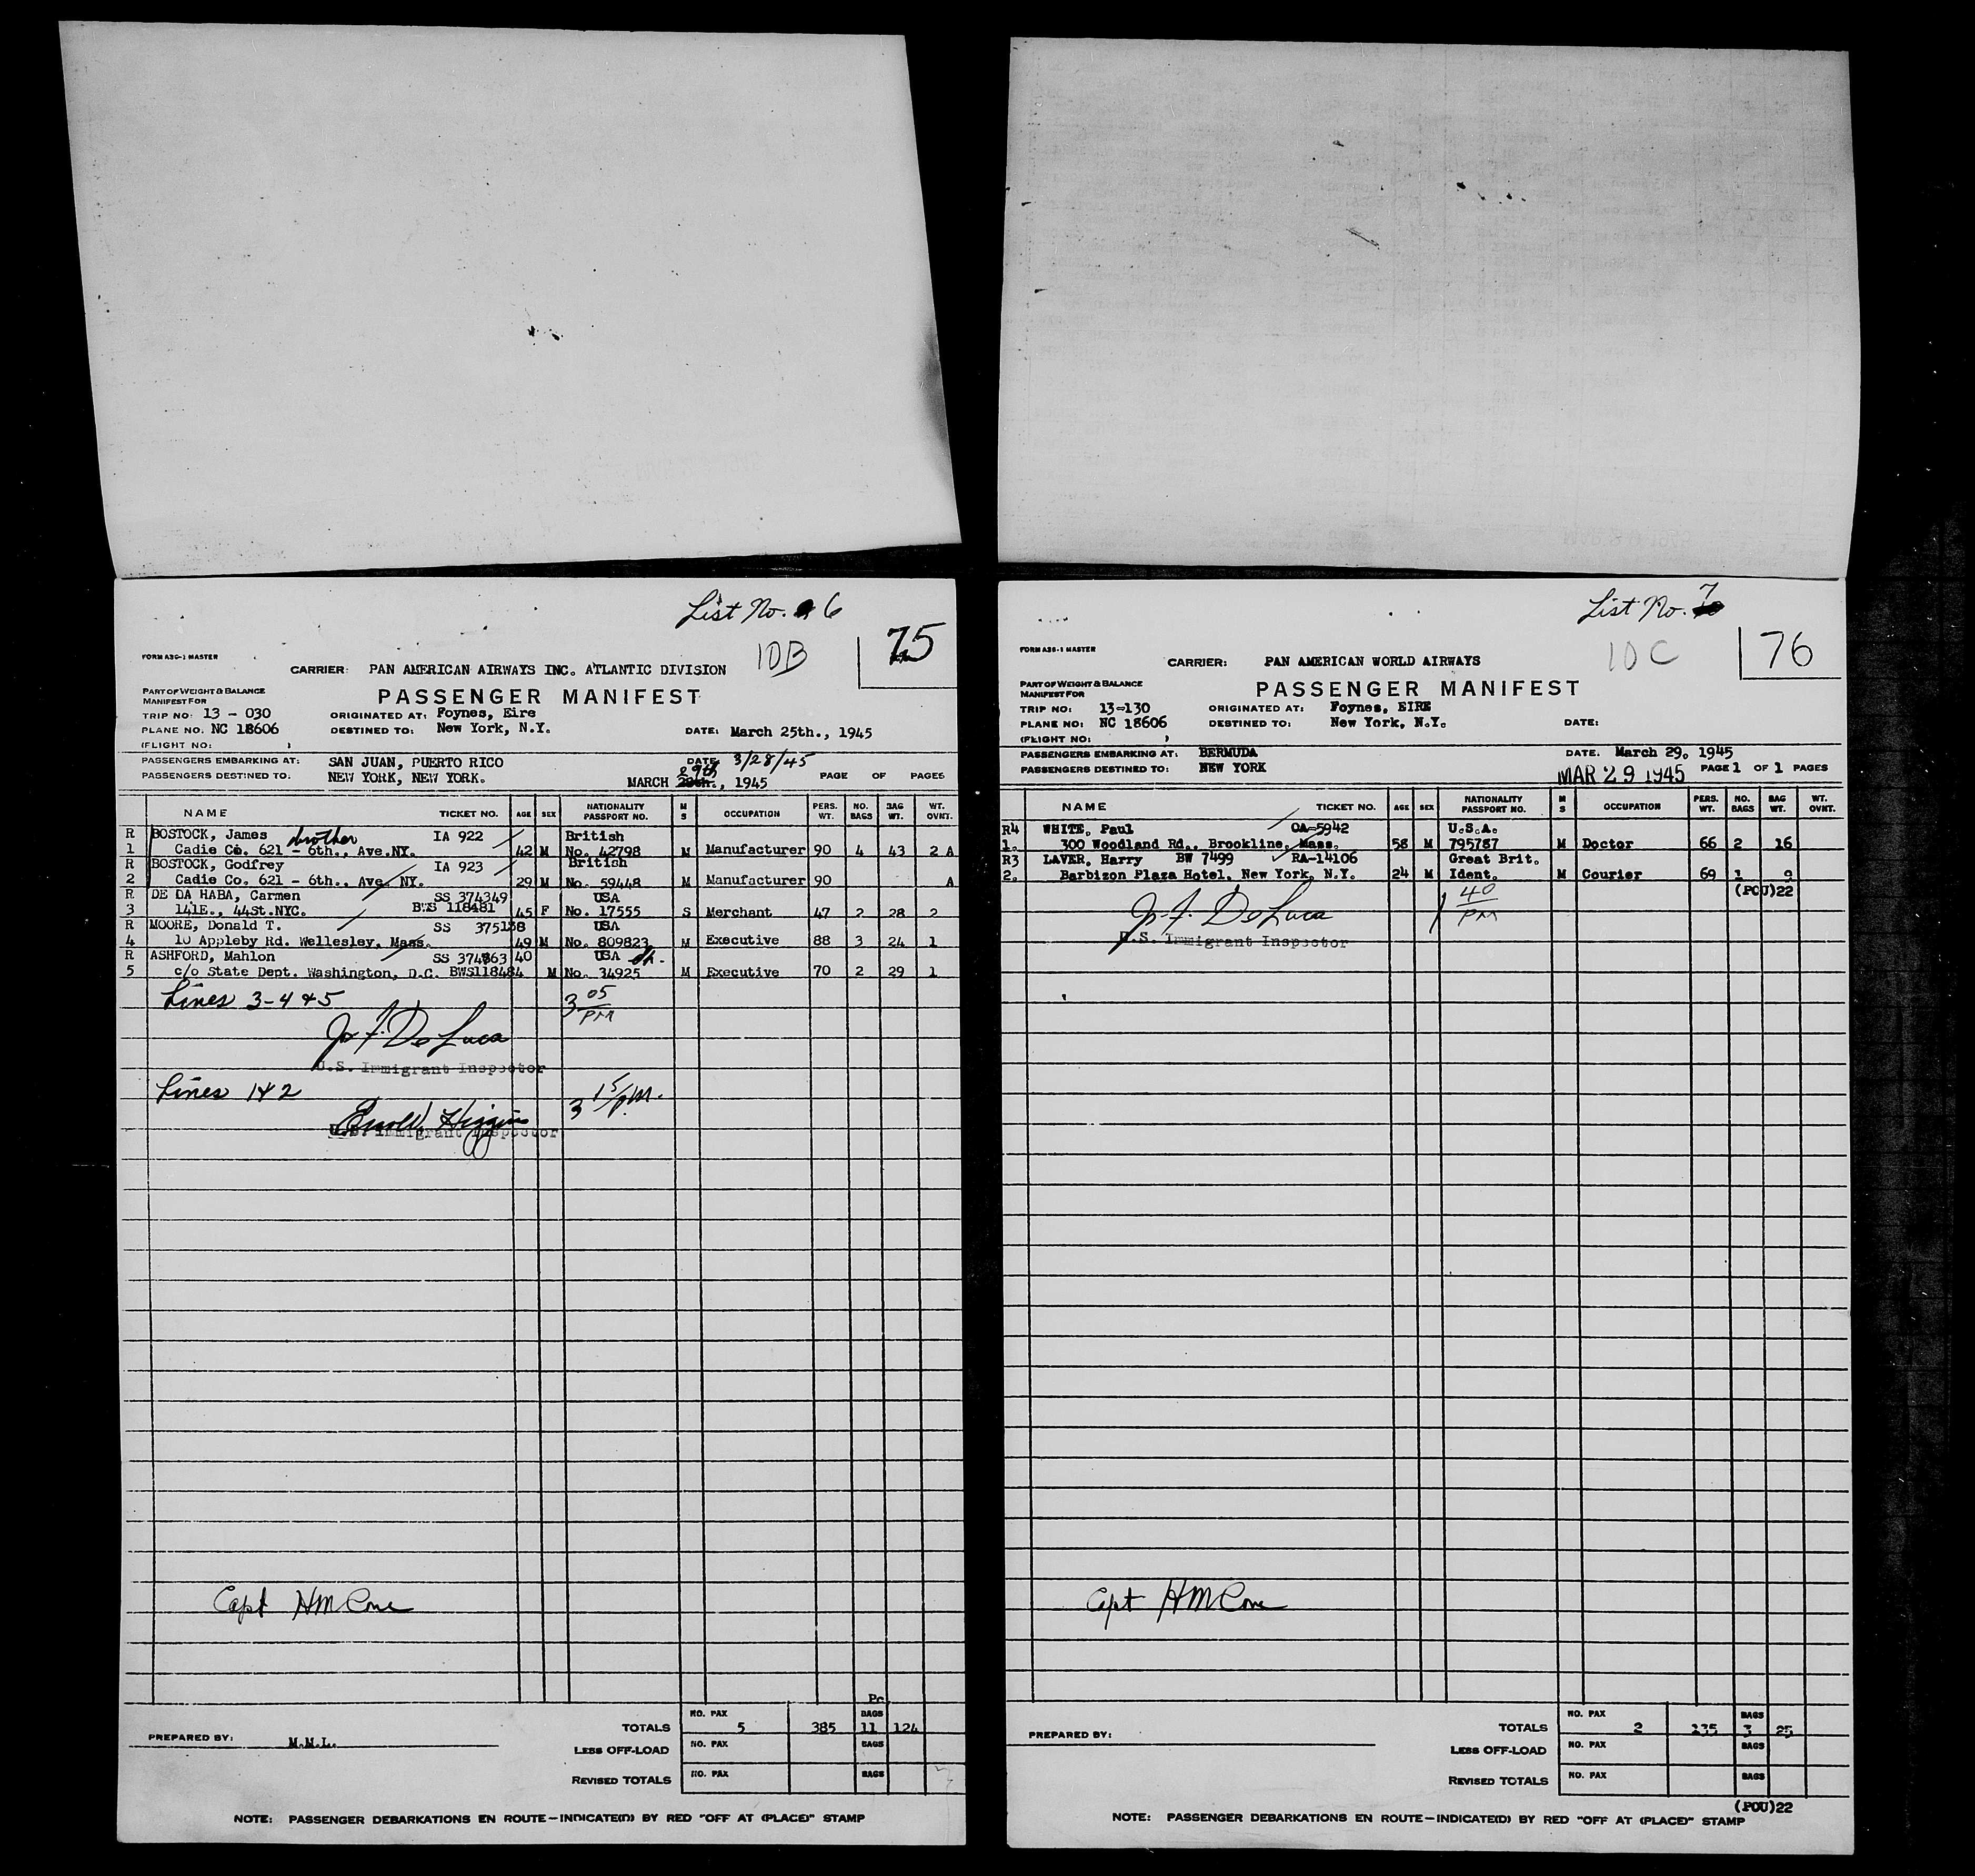 List No. 6
10B
75
FORM A36-1 MASTER
CARRIER: PAN AMERICAN AIRWAYS INC. ATLANTIC DIVISION
PART OF WEIGHT & BALANCE
MANIFEST FOR
PASSENGER MANIFEST
TRIP NO: 13 - 030 ORIGINATED AT: Foynes, Eire
PLANE NO. NC 18606 DESTINED TO: New York, N.Y. DATE: March 25th., 1945
(FLIGHT NO: )
PASSENGERS EMBARKING AT: SAN JUAN, PUERTO RICO DATE 3/28/45
29th
PASSENGERS DESTINED TO: NEW YORK, NEW YORK. MARCH 28th., 1945 PAGE OF PAGES
NAME TICKET NO. AGE SEX NATIONALITY PASSPORT NO. M S OCCUPATION PERS. WT. NO. BAGS BAG WT. WT. OVNT.
R BOSTOCK, James brother IA 922 British
1 Cadie Co. 621 - 6th., Ave.NY. 42 M No. 42798 M Manufacturer 90 4 43 2 A
R BOSTOCK, Godfrey IA 923 British
2 Cadie Co. 621 - 6th., Ave. NY. 29 M No. 59448 M Manufacturer 90 A
R DE DA HABA, Carmen SS 374349 USA
3 141E., 44St.NYC. BWS 118481 45 F No. 17555 S Merchant 47 2 28 2
R MOORE, Donald T. SS 375138 USA
4 10 Appleby Rd. Wellesley, Mass. 49 M No. 809823 M Executive 88 3 24 1
R ASHFORD, Mahlon SS 374863 40 USA
5 c/o State Dept. Washington, D.C. BWS118484 M No. 34925 M Executive 70 2 29 1
Lines 3-4 & 5 3 05 PM
Jo. F. De Luca
U.S. Immigrant Inspector
Lines 1 & 2 3 15/P.M.
Higgins
U.S. Immigrant Inspector
Capt HM Cone
Pc
NO. PAX BAGS
TOTALS 5 385 11 124
PREPARED BY: M.M.L.
LESS OFF-LOAD NO. PAX BAGS
REVISED TOTALS NO. PAX BAGS
NOTE: PASSENGER DEBARKATIONS EN ROUTE—INDICATE(D) BY RED "OFF AT (PLACE)" STAMP
List No. 7
10C
76
FORM A36-1 MASTER
CARRIER: PAN AMERICAN WORLD AIRWAYS
PART OF WEIGHT & BALANCE
MANIFEST FOR
PASSENGER MANIFEST
TRIP NO: 13-130 ORIGINATED AT: Foynes, EIRE
PLANE NO: NC 18606 DESTINED TO: New York, N.Y. DATE:
(FLIGHT NO: )
PASSENGERS EMBARKING AT: BERMUDA DATE. March 29. 1945
PASSENGERS DESTINED TO: NEW YORK MAR 29 1945 PAGE 1 OF 1 PAGES
NAME TICKET NO. AGE SEX NATIONALITY PASSPORT NO. M S OCCUPATION PERS. WT. NO. BAGS BAG WT. WT. OVNT.
R4 WHITE, Paul OA-5942 U.S.A.
1. 300 Woodland Rd., Brookline, Mass. 58 M 795787 M Doctor 66 2 16
R3 LAVER, Harry BW 7499 RA-14106 Great Brit.
2. Barbizon Plaza Hotel, New York, N.Y. 24 M Ident. M Courier 69 1 9
(POU)22
Jo. F. De Luca 1 40 PM
U.S. Immigrant Inspector
Capt HM Cone
NO. PAX BAGS
TOTALS 2 135 3 25
PREPARED BY:
LESS OFF-LOAD NO. PAX BAGS
REVISED TOTALS NO. PAX BAGS
(POU)22
NOTE: PASSENGER DEBARKATIONS EN ROUTE—INDICATE(D) BY RED "OFF AT (PLACE)" STAMP